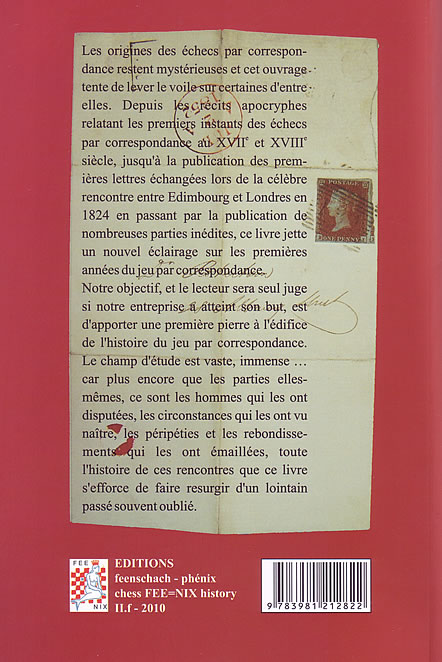 Les origines des échecs par correspon-
dance restent mystérieuses et cet ouvrage
tente de lever le voile sur certaines d'entre
elles. Depuis les récits apocryphes
relatant les premiers instants des échecs
par correspondance au XVIIe et XVIIIe
siècle, jusqu'à la publication des prem-
ières lettres échangées lors de la célèbre
rencontre entre Edimbourg et Londres en
1824 en passant par la publication de
nombreuses parties inédites, ce livre jette
un nouvel éclairage sur les premières
années du jeu par correspondance.
Notre objectif, et le lecteur sera seul juge
si notre entreprise a atteint son but, est
d'apporter une première pierre à l'édifice
de l'histoire du jeu par correspondance.
Le champ d'étude est vaste, immense ...
car plus encore que les parties elles-
mêmes, ce sont les hommes qui les ont
disputées, les circonstances qui les ont vu
naître, les péripéties et les rebondisse-
ments qui les ont émaillées, toute
l'histoire de ces rencontres que ce livre
s'efforce de faire resurgir d'un lointain
passé souvent oublié.
POSTAGE
ONE PENNY
FEE
NIX
EDITIONS
feenschach - phénix
chess FEE=NIX history
II.f - 2010
9 783981 212822